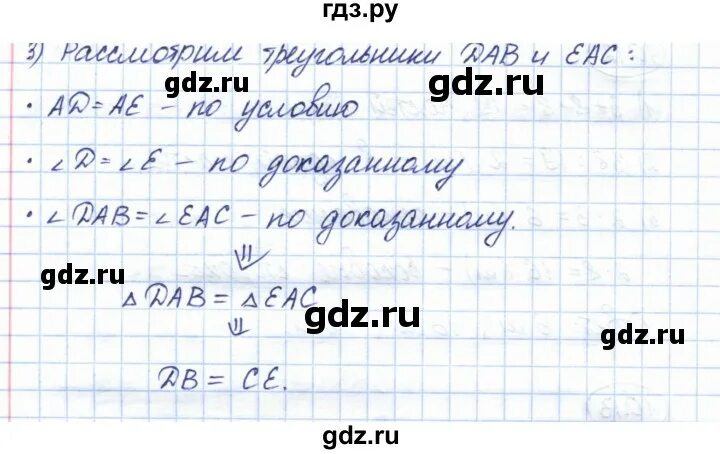 гдз.ру
3) Рассмотрим треугольники DAB и EAC:
gdz.ru
gdz.ru
• AD=AE – по условию
• ∠D=∠E – по доказанному
• ∠DAB=∠EAC – по доказанному.
⇓
gdz.ru
△DAB = △EAC
gdz.ru
gdz.ru
⇓
DB = CE.
gdz.ru